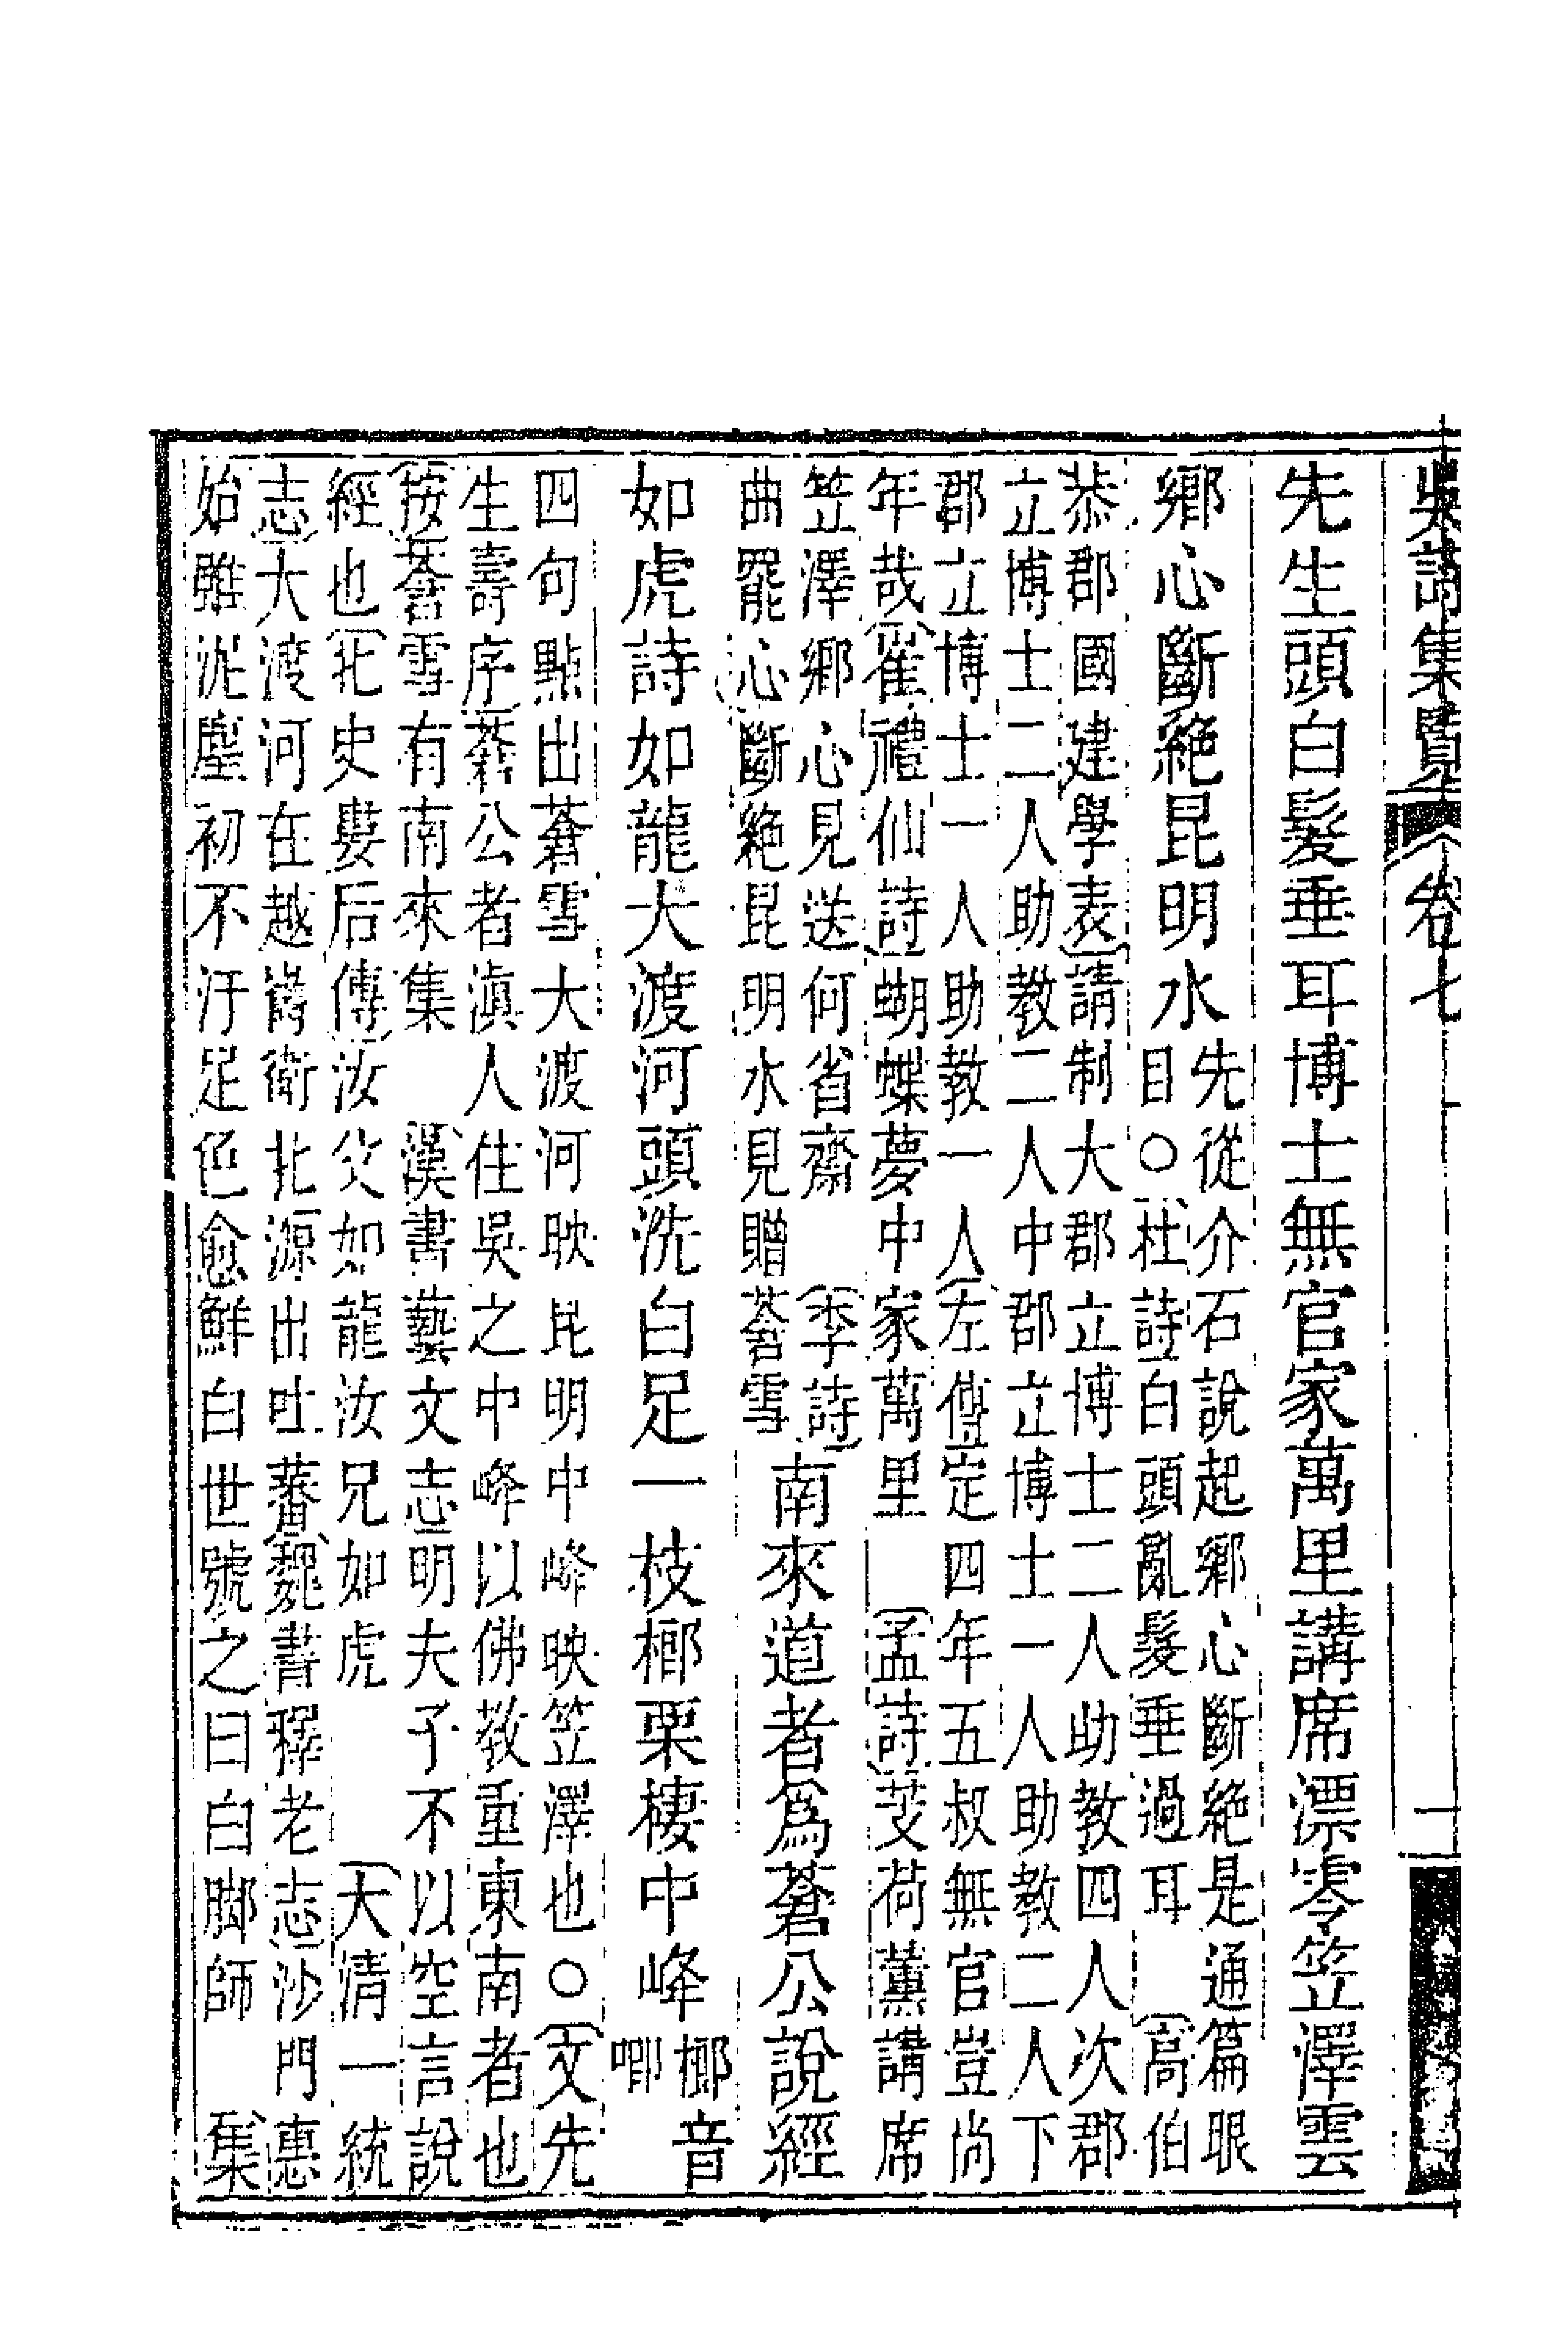 吳詩集覽 卷七 一
先生頭白髮垂耳博士無官家萬里講席漂零笠澤雲
鄉心斷絕昆明水
先從介石說起鄉心斷絕是通篇眼
目○杜詩白頭亂髮垂過耳 高伯
恭郡國建學表請制大郡立博士二人助教四人次郡
立博士二人助教二人中郡立博士一人助教二人下
郡立博士一人助教一人左傳定四年五叔無官豈尚
年哉崔禮仙詩蝴蝶夢中家萬里 孟詩芰荷薰講席
笠澤鄉心見送何省齋 季詩
曲罷心斷絕昆明水見贈蒼雪
南來道者為蒼公說經
如虎詩如龍大渡河頭洗白足一枝榔栗棲中峰
榔音
唧
四句點出蒼雪大渡河映昆明中峰映笠澤也○文先
生壽序蒼公者滇人住吳之中峰以佛教重東南者也
按蒼雪有南來集 漢書藝文志明夫子不以空言說
經也北史婁后傳汝父如龍汝兄如虎 大清一統
志大渡河在越嶲衛北源出吐蕃魏書釋老志沙門惠
始雖泥塵初不汙足色愈鮮白世號之曰白腳師 集